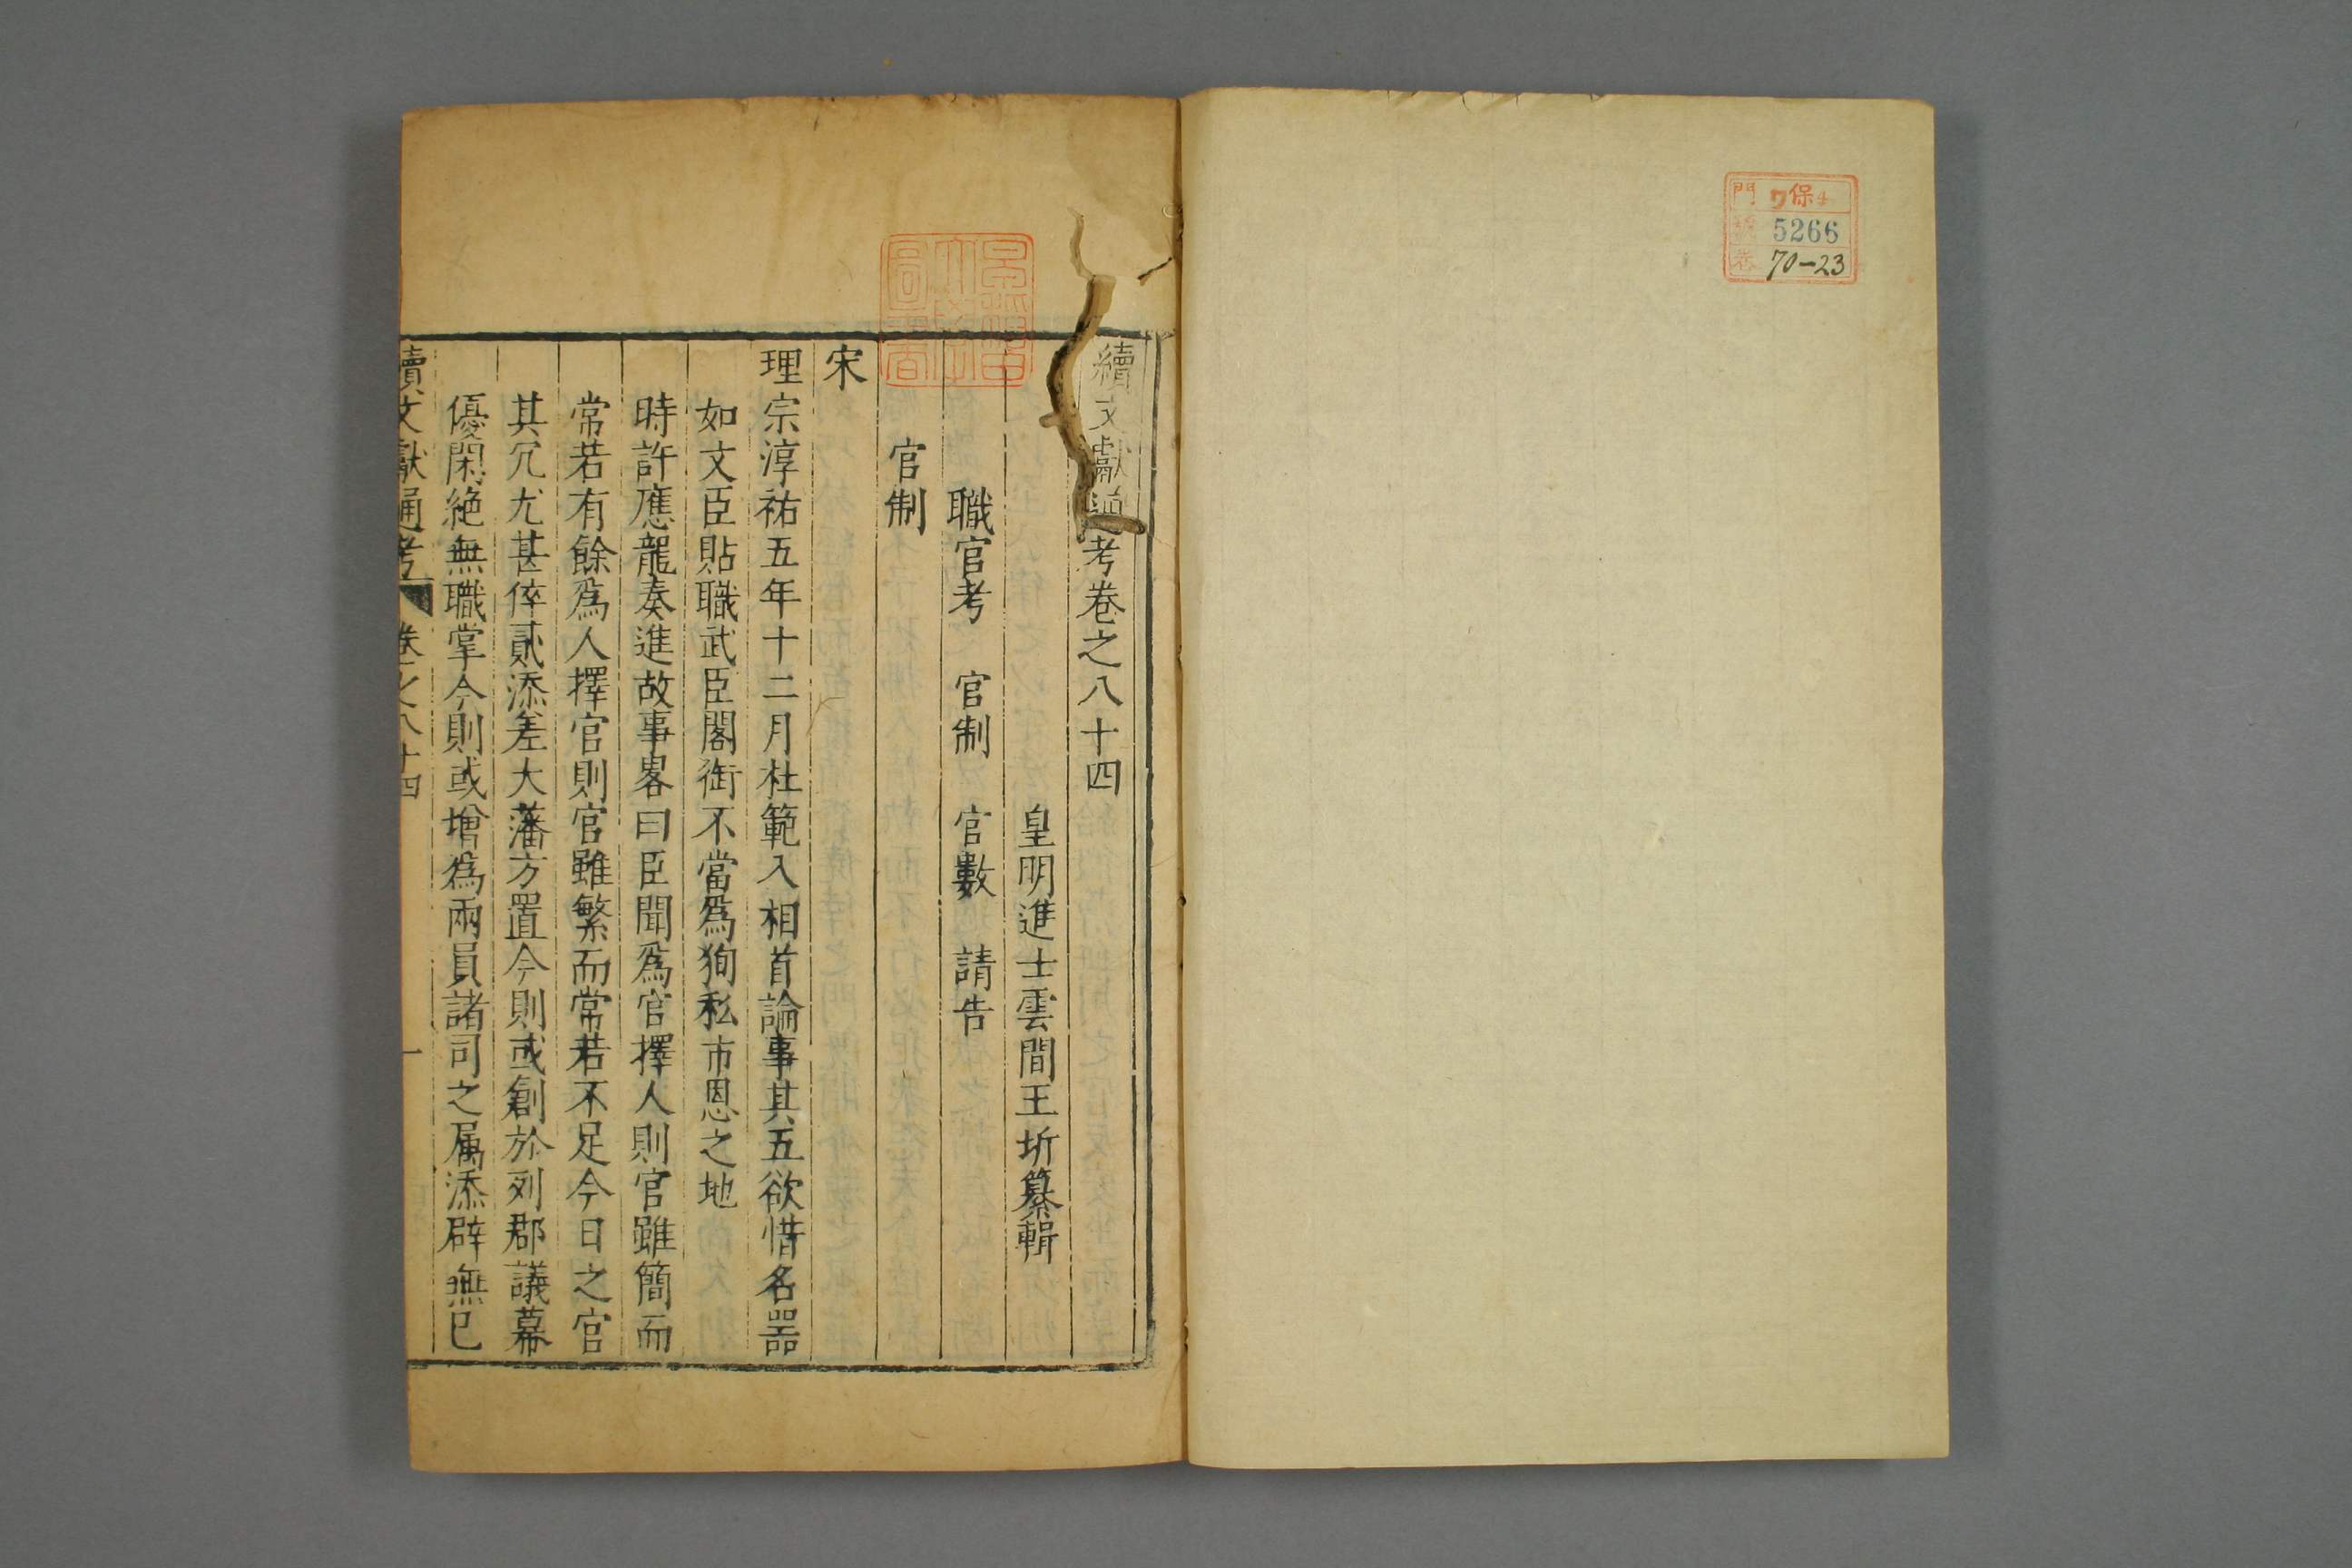 門 ワ保4
號 5266
卷 70-23
續文獻通考卷之八十四
皇明進士雲間王圻纂輯
職官考 官制 官數 請告
官制
宋
理宗淳祐五年十二月杜範入相首論事其五欲惜名器
如文臣貼職武臣閣衘不當爲狥私市恩之地
時許應龍奏進故事畧曰臣聞爲官擇人則官雖簡而
常若有餘爲人擇官則官雖繁而常若不足今日之官
其冗尤甚倅貳添差大藩方置今則或創於列郡議幕
優閑絶無職掌今則或增爲兩員諸司之属添辟無已
續文獻通考 卷之八十四 一